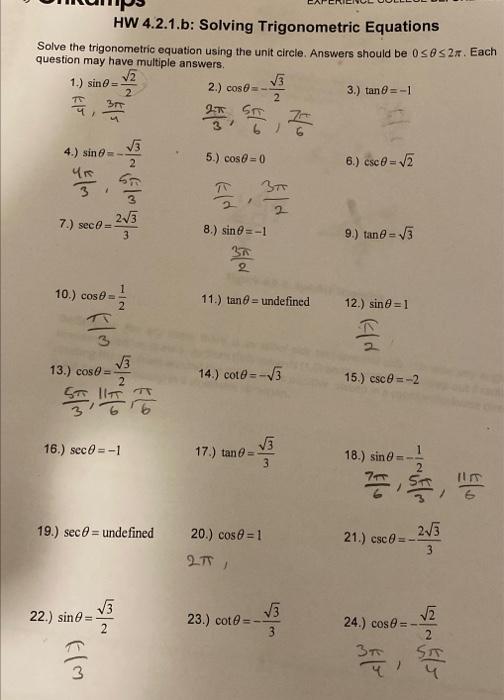 HW 4.2.1.b: Solving Trigonometric Equations
Solve the trigonometric equation using the unit circle. Answers should be 0≤θ≤2π. Each
question may have multiple answers.
1.) sinθ = √2/2
π/4, 3π/4
2.) cosθ = -√3/2
2π/3, 5π/6, 7π/6
3.) tanθ = -1
4.) sinθ = -√3/2
4π/3, 5π/3
5.) cosθ = 0
π/2, 3π/2
6.) cscθ = √2
7.) secθ = 2√3/3
8.) sinθ = -1
3π/2
9.) tanθ = √3
10.) cosθ = 1/2
π/3
11.) tanθ = undefined
12.) sinθ = 1
π/2
13.) cosθ = √3/2
5π/3, 11π/6, π/6
14.) cotθ = -√3
15.) cscθ = -2
16.) secθ = -1
17.) tanθ = √3/3
18.) sinθ = -1/2
7π/6, 5π/3, 11π/6
19.) secθ = undefined
20.) cosθ = 1
2π,
21.) cscθ = -2√3/3
22.) sinθ = √3/2
π/3
23.) cotθ = -√3/3
24.) cosθ = -√2/2
3π/4, 5π/4